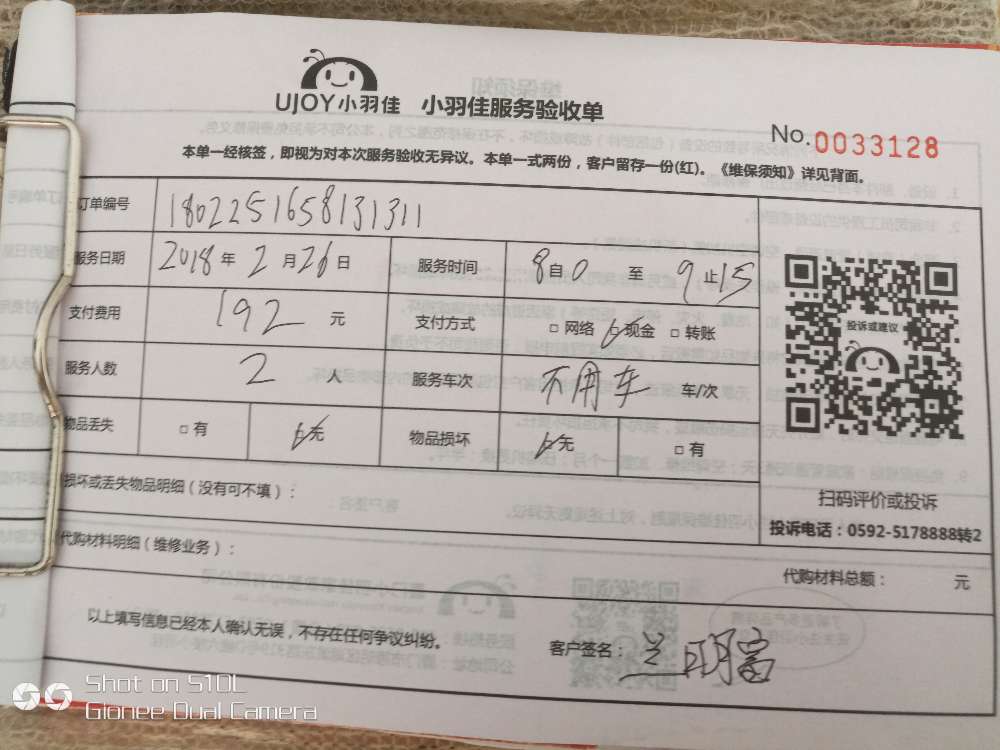 UJOY小羽佳 小羽佳服务验收单
No.0033128
本单一经核签，即视为对本次服务验收无异议。本单一式两份，客户留存一份(红)。《维保须知》详见背面。
订单编号 1802251658131311
服务日期 2018年2月26日 服务时间 8自0至9止15
支付费用 192元 支付方式 □网络 现金 □转账
服务人数 2人 服务车次 不用车 车/次
物品丢失 □有 无 物品损坏 无 □有
投诉或建议
扫码评价或投诉
投诉电话：0592-5178888转2
损坏或丢失物品明细（没有可不填）：
代购材料明细（维修业务）：
代购材料总额： 元
以上填写信息已经本人确认无误，不存在任何争议纠纷。
客户签名：兰明富
Shot on S10L
Gionee Dual Camera